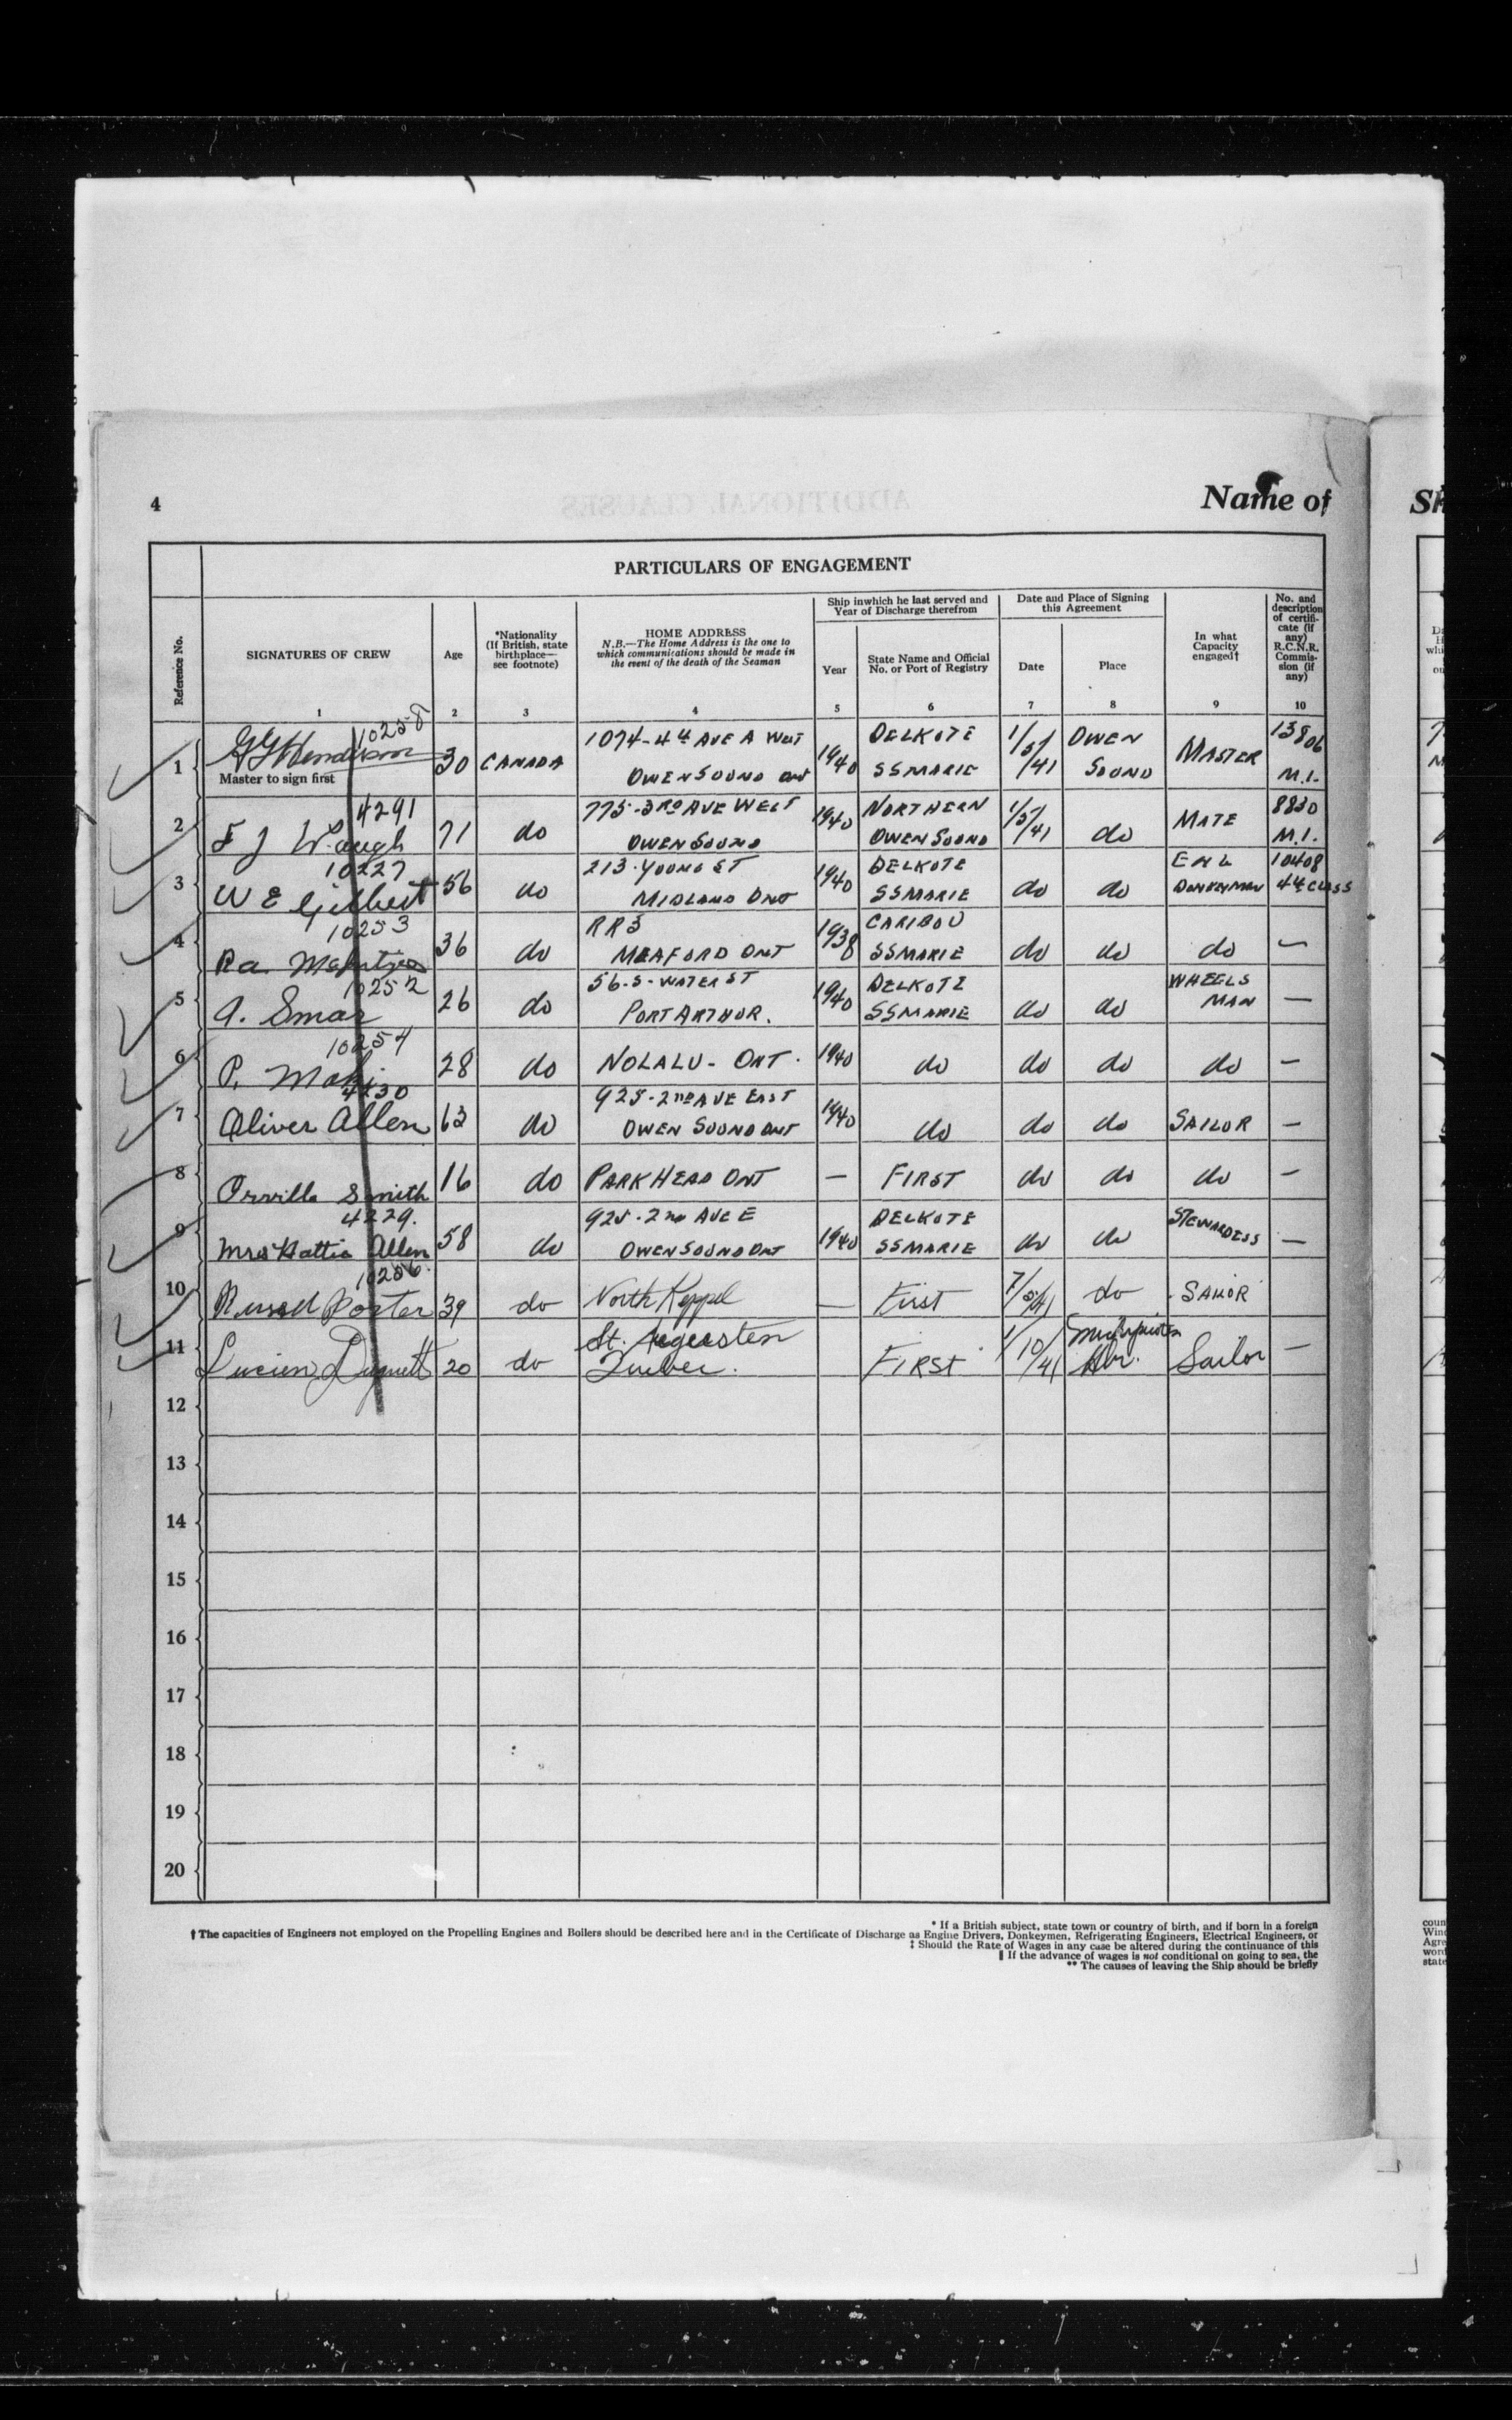 4
Name of
PARTICULARS OF ENGAGEMENT
Reference No.
SIGNATURES OF CREW
Age
*Nationality
(If British, state
birthplace—
see footnote)
HOME ADDRESS
N.B.—The Home Address is the one to
which communications should be made in
the event of the death of the Seaman
Ship inwhich he last served and
Year of Discharge therefrom
Year
State Name and Official
No. or Port of Registry
Date and Place of Signing
this Agreement
Date
Place
In what
Capacity
engaged†
No. and
description
of certifi-
cate (if
any)
R.C.N.R.
Commis-
sion (if
any)
1 2 3 4 5 6 7 8 9 10
10258
1 GG Henderson 30 CANADA 1074-4th AVE A WEST 1940 DELKOTE 1/5/41 OWEN MASTER 13806
Master to sign first OWEN SOUND ONT SSMARIE SOUND M.I.
4291
2 F J Waugh 71 do 775-3RD AVE WEST 1940 NORTHERN 1/5/41 do MATE 8830
OWEN SOUND OWEN SOUND M.I.
10227
3 W E Gilbert 56 do 213. YOUNG ST 1940 DELKOTE do do 10408
MIDLAND ONT SSMARIE DONKEYMAN 4th CLASS
10253
4 36 do RR3 1938 CARIBOU do do do —
MEAFORD ONT SSMARIE
10252
5 A. Smar 26 do 56-S-WATER ST 1940 DELKOTE do do WHEELS
PORT ARTHUR. SSMARIE MAN —
10254
6 P. Maki 28 do NOLALU- ONT. 1940 do do do do —
4230
7 Oliver Allen 63 do 925-2ND AVE EAST 1940 do do do SAILOR —
OWEN SOUND ONT
8 Orville Smith 16 do PARK HEAD ONT — FIRST do do do —
4229.
9 Mrs Hattie Allen 58 do 925-2nd AVE E 1940 DELKOTE do do STEWARDESS —
OWEN SOUND ONT SSMARIE
10256.
10 Russell Porter 39 do North Keppel — First 7/5/41 do SAILOR
11 Lucien 20 do St. Augusten FIRST 1/10/41 Sailor —
Quebec.
12
13
14
15
16
17
18
19
20
* If a British subject, state town or country of birth, and if born in a foreign
† The capacities of Engineers not employed on the Propelling Engines and Boilers should be described here and in the Certificate of Discharge as Engine Drivers, Donkeymen, Refrigerating Engineers, Electrical Engineers, or
‡ Should the Rate of Wages in any case be altered during the continuance of this
‖ If the advance of wages is not conditional on going to sea, the
** The causes of leaving the Ship should be briefly